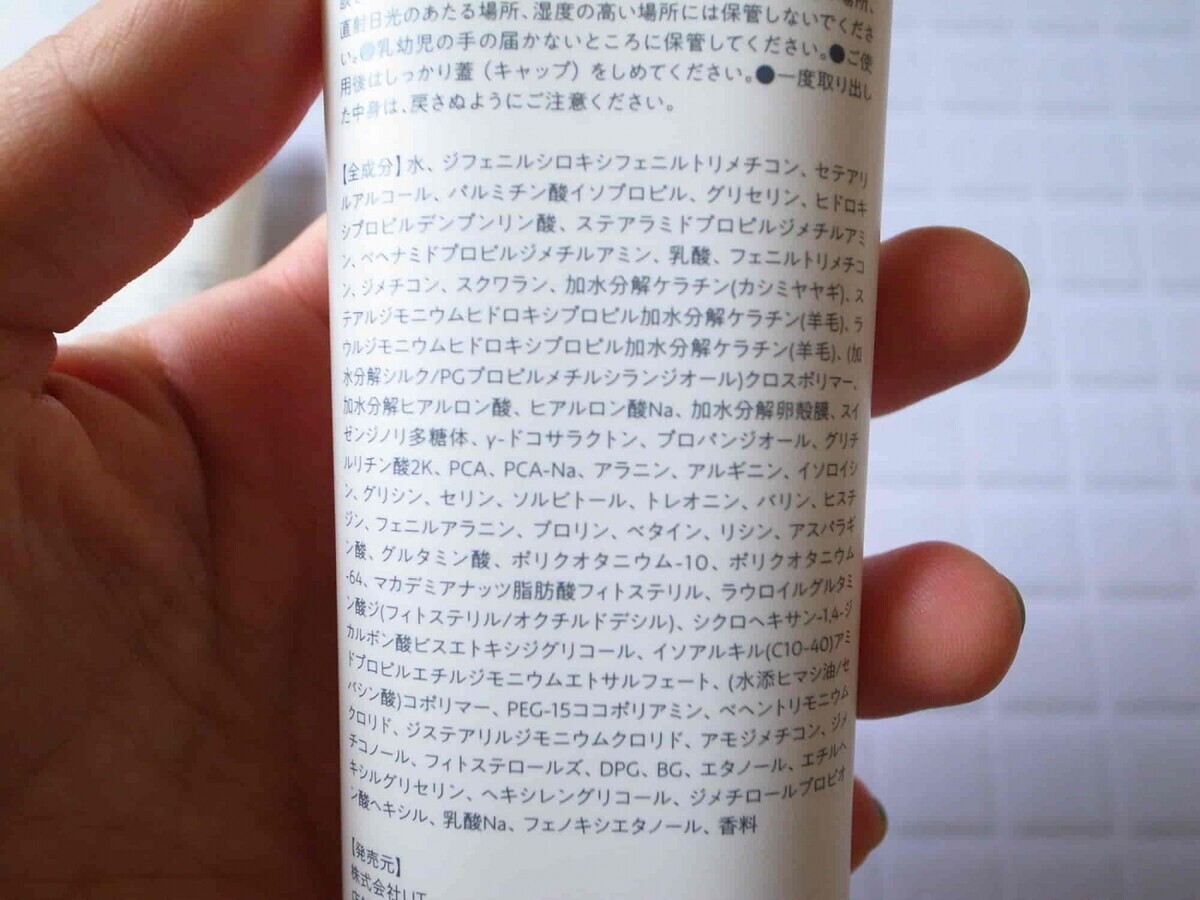 直射日光のあたる場所、湿度の高い場所には保管しないでくださ
い。●乳幼児の手の届かないところに保管してください。●ご使
用後はしっかり蓋（キャップ）をしめてください。●一度取り出し
た中身は、戻さぬようにご注意ください。
【全成分】水、ジフェニルシロキシフェニルトリメチコン、セテアリ
ルアルコール、パルミチン酸イソプロピル、グリセリン、ヒドロキ
シプロピルデンプンリン酸、ステアラミドプロピルジメチルアミ
ン、ベヘナミドプロピルジメチルアミン、乳酸、フェニルトリメチコ
ン、ジメチコン、スクワラン、加水分解ケラチン(カシミヤヤギ)、ス
テアルジモニウムヒドロキシプロピル加水分解ケラチン(羊毛)、ラ
ウルジモニウムヒドロキシプロピル加水分解ケラチン(羊毛)、(加
水分解シルク/PGプロピルメチルシランジオール)クロスポリマー、
加水分解ヒアルロン酸、ヒアルロン酸Na、加水分解卵殻膜、スイ
ゼンジノリ多糖体、γ-ドコサラクトン、プロパンジオール、グリチ
ルリチン酸2K、PCA、PCA-Na、アラニン、アルギニン、イソロイシ
ン、グリシン、セリン、ソルビトール、トレオニン、バリン、ヒスチ
ジン、フェニルアラニン、プロリン、ベタイン、リシン、アスパラギ
ン酸、グルタミン酸、ポリクオタニウム-10、ポリクオタニウム
-64、マカデミアナッツ脂肪酸フィトステリル、ラウロイルグルタミ
ン酸ジ(フィトステリル/オクチルドデシル)、シクロヘキサン-1,4-ジ
カルボン酸ビスエトキシジグリコール、イソアルキル(C10-40)アミ
ドプロピルエチルジモニウムエトサルフェート、(水添ヒマシ油/セ
バシン酸)コポリマー、PEG-15ココポリアミン、ベヘントリモニウム
クロリド、ジステアリルジモニウムクロリド、アモジメチコン、ジメ
チコノール、フィトステロールズ、DPG、BG、エタノール、エチルヘ
キシルグリセリン、ヘキシレングリコール、ジメチロールプロピオ
ン酸ヘキシル、乳酸Na、フェノキシエタノール、香料
【発売元】
株式会社